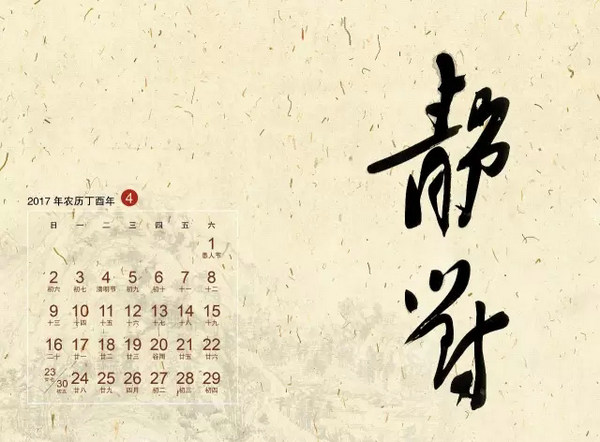 静對
2017 年农历丁酉年 4
日 一 二 三 四 五 六
1
愚人节
2 3 4 5 6 7 8
初六 初七 清明节 初九 初十 十一 十二
9 10 11 12 13 14 15
十三 十四 十五 十六 十七 十八 十九
16 17 18 19 20 21 22
二十 廿一 廿二 廿三 谷雨 廿五 廿六
23/30 24 25 26 27 28 29
廿七 初五 廿八 廿九 四月 初二 初三 初四